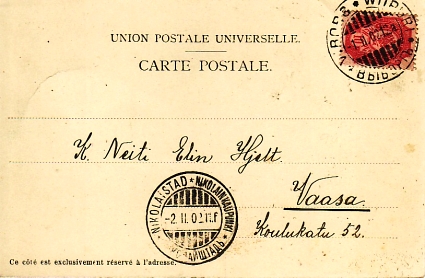 UNION POSTALE UNIVERSELLE.
CARTE POSTALE.
K. Neiti Elin Hjelt.
Vaasa.
Koulukatu 52.
NIKOLAISTAD * NIKOLAINKAUPUNKI
-2.II.02
Ce côté est exclusivement réservé à l'adresse.